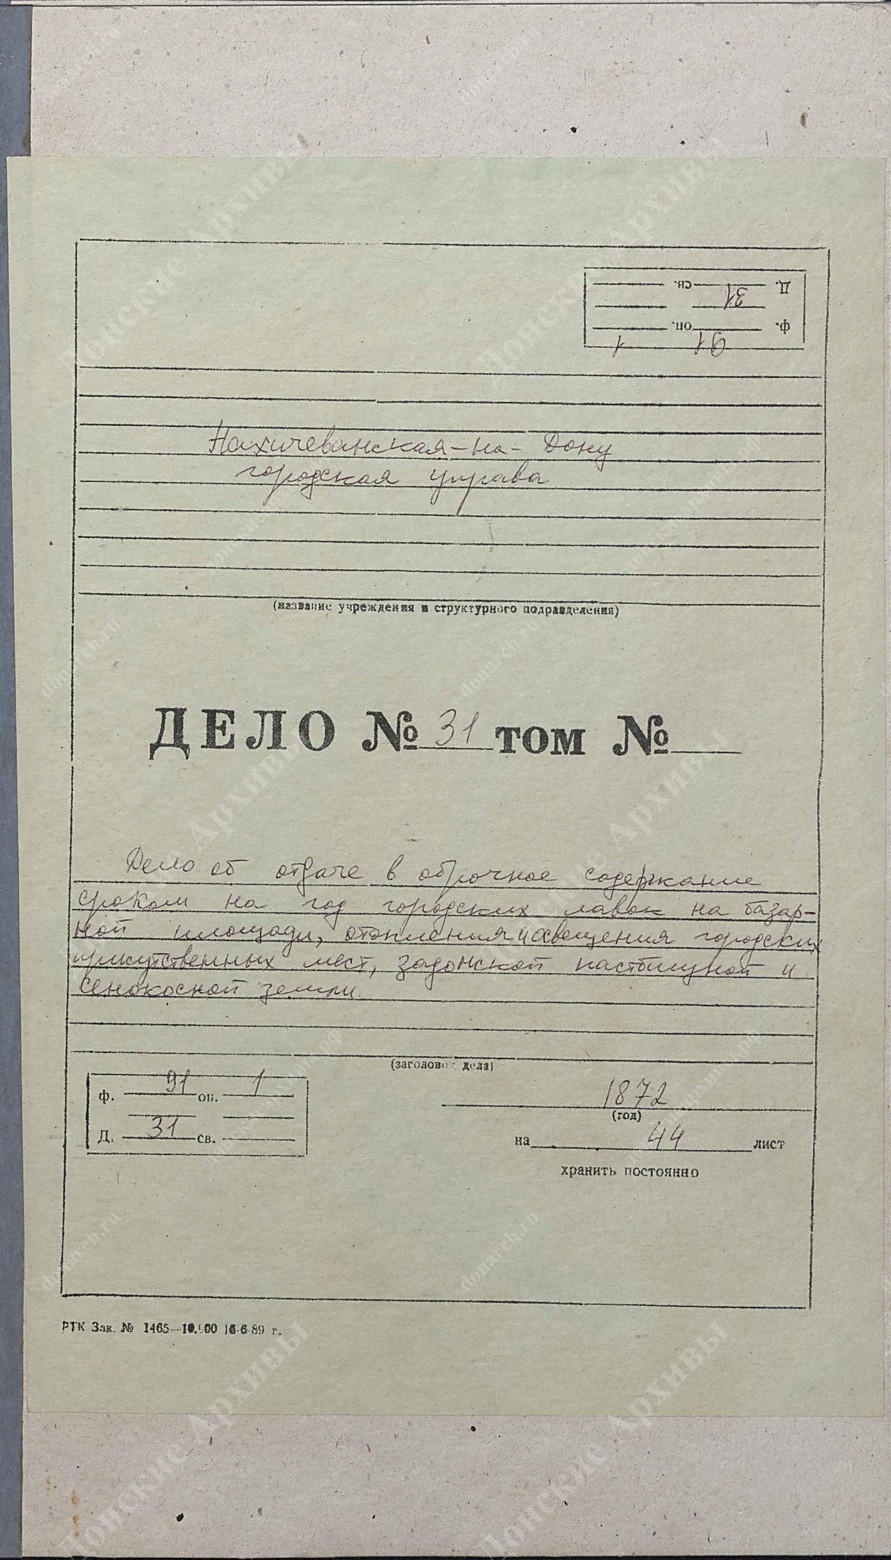 Д. 31 св.
ф. 91 оп. 1
Нахичеванская-на-Дону
городская управа
(название учреждения и структурного подразделения)
ДЕЛО № 31 том №
Дело об отдаче в оброчное содержание
сроком на год городских лавок на базар-
ной площади, отопления и освещения городских
присутственных мест, задонской пастбищной и
сенокосной земли.
(заголовок дела)
ф. 91 оп. 1
Д. 31 св.
1872
(год)
на 44 лист
хранить постоянно
РТК Зак. № 1465 16-6-89 г.
Донские Архивы
domarch.ru